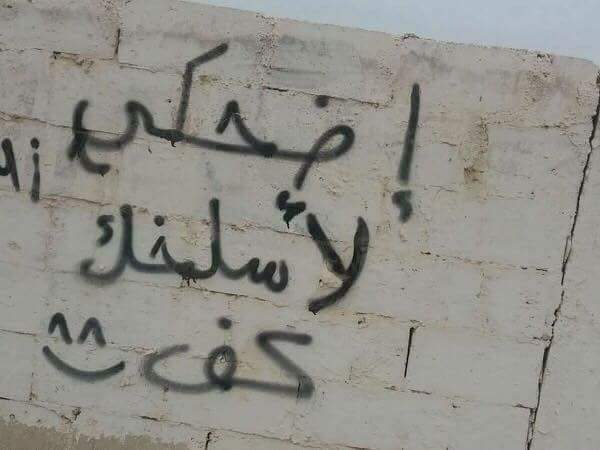 إضحكي
لأسلخك
كف ^^